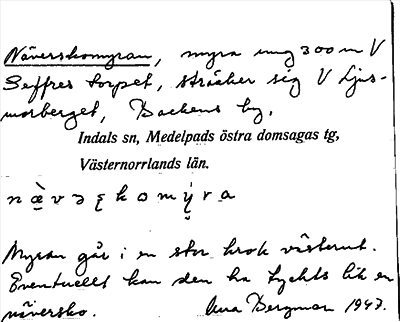 Näverskomyran, myra ung 300 m V
Seffres torpet, sträcker sig V Ljus-
morberget, Backens by.
Indals sn, Medelpads östra domsagas tg,
Västernorrlands län.
Myran går i en stor krok västerut.
Eventuellt kan den ha tyckts lik en
näversko. Anna Bergman 1947.